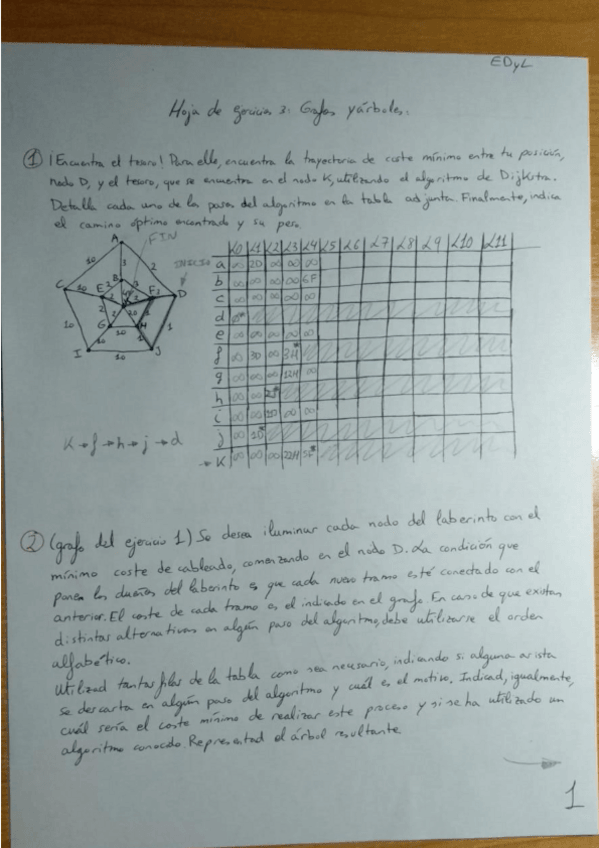 EDyL
Hoja de ejercicios 3: Grafos y árboles:
① ¡Encuentra el tesoro! Para ello, encuentra la trayectoria de coste mínimo entre tu posición,
nodo D, y el tesoro, que se encuentra en el nodo K, utilizando el algoritmo de Dijkstra.
Detalla cada uno de los pasos del algoritmo en la tabla adjunta. Finalmente, indica
el camino óptimo encontrado y su peso.
FIN
INICIO
A
B
C
D
E
F
G
H
I
J
10
3
2
10
10
10
10
L0 L1 L2 L3 L4 L5 L6 L7 L8 L9 L10 L11
a ∞ 2D ∞ ∞ ∞
b ∞ ∞ ∞ ∞ 6F
c ∞ ∞ ∞ ∞ ∞
d
e ∞ ∞ ∞ ∞ ∞
f ∞ 3D ∞ 3H*
g ∞ ∞ ∞ 12H ∞
h ∞ ∞ 2J*
i ∞ ∞ ∞ ∞
j ∞ 1D*
→ K ∞ ∞ ∞ 22H 5F*
K → f → h → j → d
② (grafo del ejercicio 1) Se desea iluminar cada nodo del laberinto con el
mínimo coste de cableado, comenzando en el nodo D. La condición que
ponen los dueños del laberinto es que cada nuevo tramo esté conectado con el
anterior. El coste de cada tramo es el indicado en el grafo. En caso de que existan
distintas alternativas en algún paso del algoritmo, debe utilizarse el orden
alfabético.
Utilizad tantas filas de la tabla como sea necesario, indicando si alguna arista
se descarta en algún paso del algoritmo y cuál es el motivo. Indicad, igualmente,
cuál sería el coste mínimo de realizar este proceso y si se ha utilizado un
algoritmo conocido. Representad el árbol resultante.
1